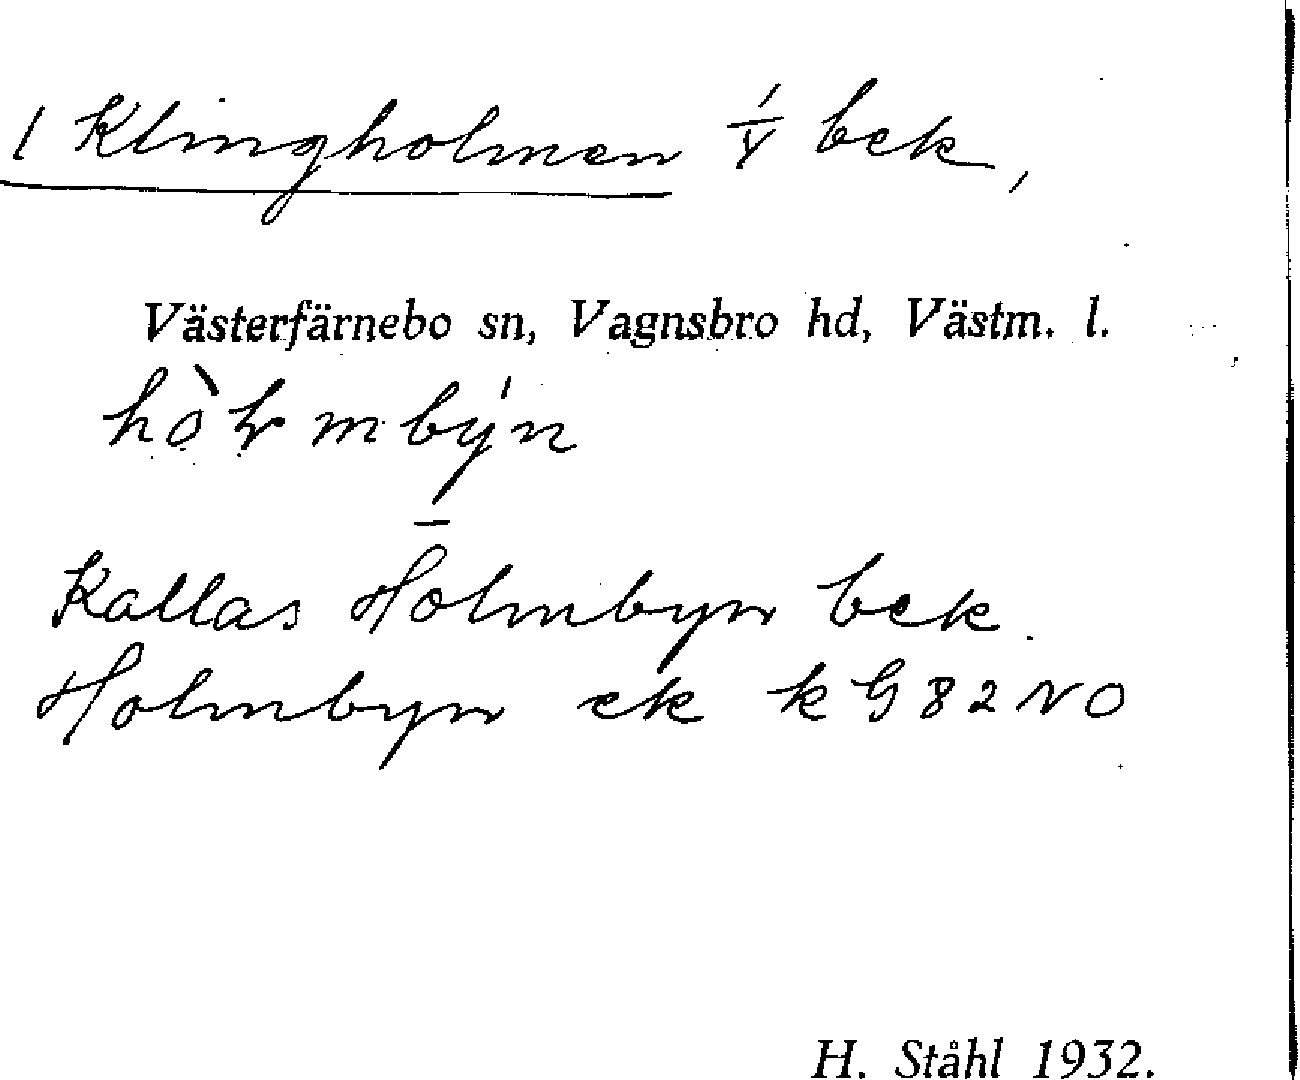 1 Klingholmen 1/V bek,
Västerfärnebo sn, Vagnsbro hd, Västm. l.
Kallas Holmbyn bek
Holmbyn ek k G 82 NO
H. Ståhl 1932.